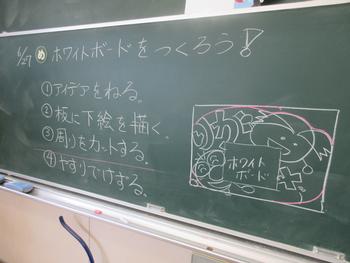 6/27 め ホワイトボードをつくろう!
①アイデアをねる。
②板に下絵を描く。
③周りをカットする。
④ヤスリでけずる。
ホワイト
ボード